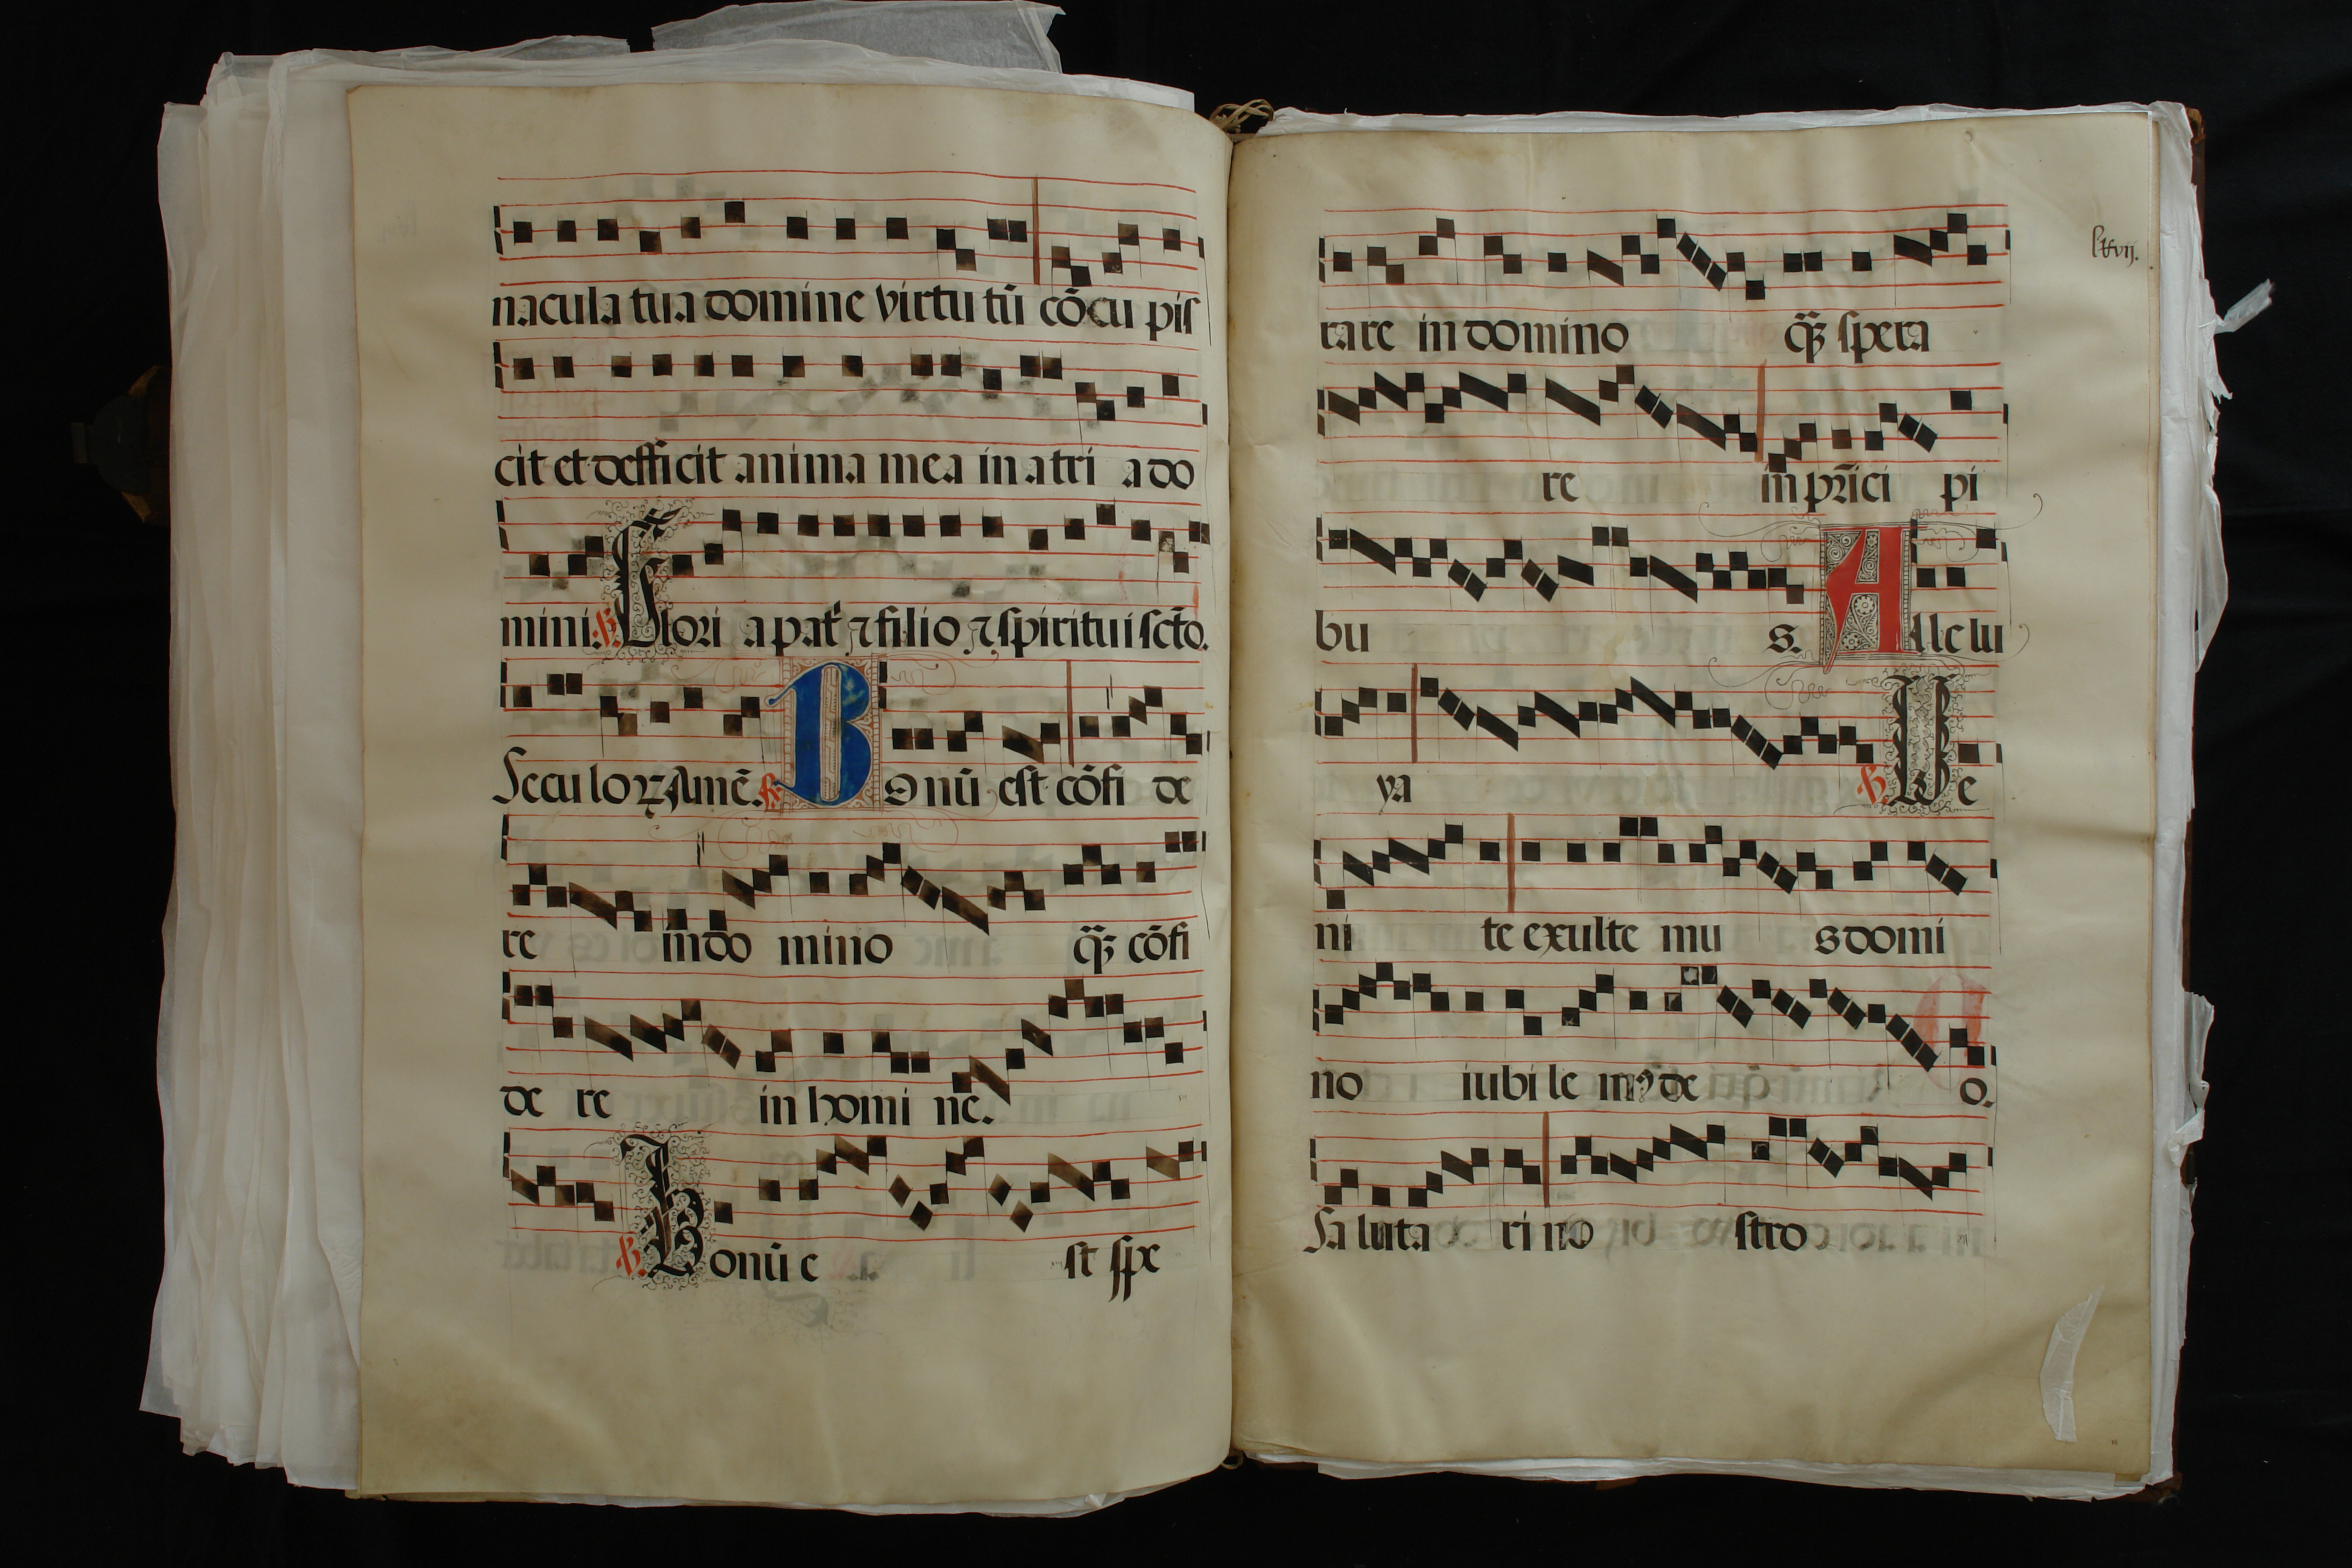 nacula tua domine virtu tū cōcu pis
cit et defficit anima mea in atri a do
mini. ℣. Glori a patꝭ ⁊ filio ⁊ spiritui scto.
Seculoꝝ Amē. ℟. B Onū est cōfi de
re in do mino q̄ȝ cōfi
de re in homi ne.
℣. Bonū e st spe
lxvij.
rare in domino q̄ȝ spera
re in pr̄ici pi
bu s. A lle lu
ya ℣. Ve
ni te exulte mu s domi
no iubi le mꝰ de o.
Sa luta ri no stro